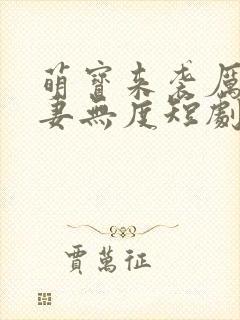 萌寶來袭厲
妻無度短劇
賈萬征